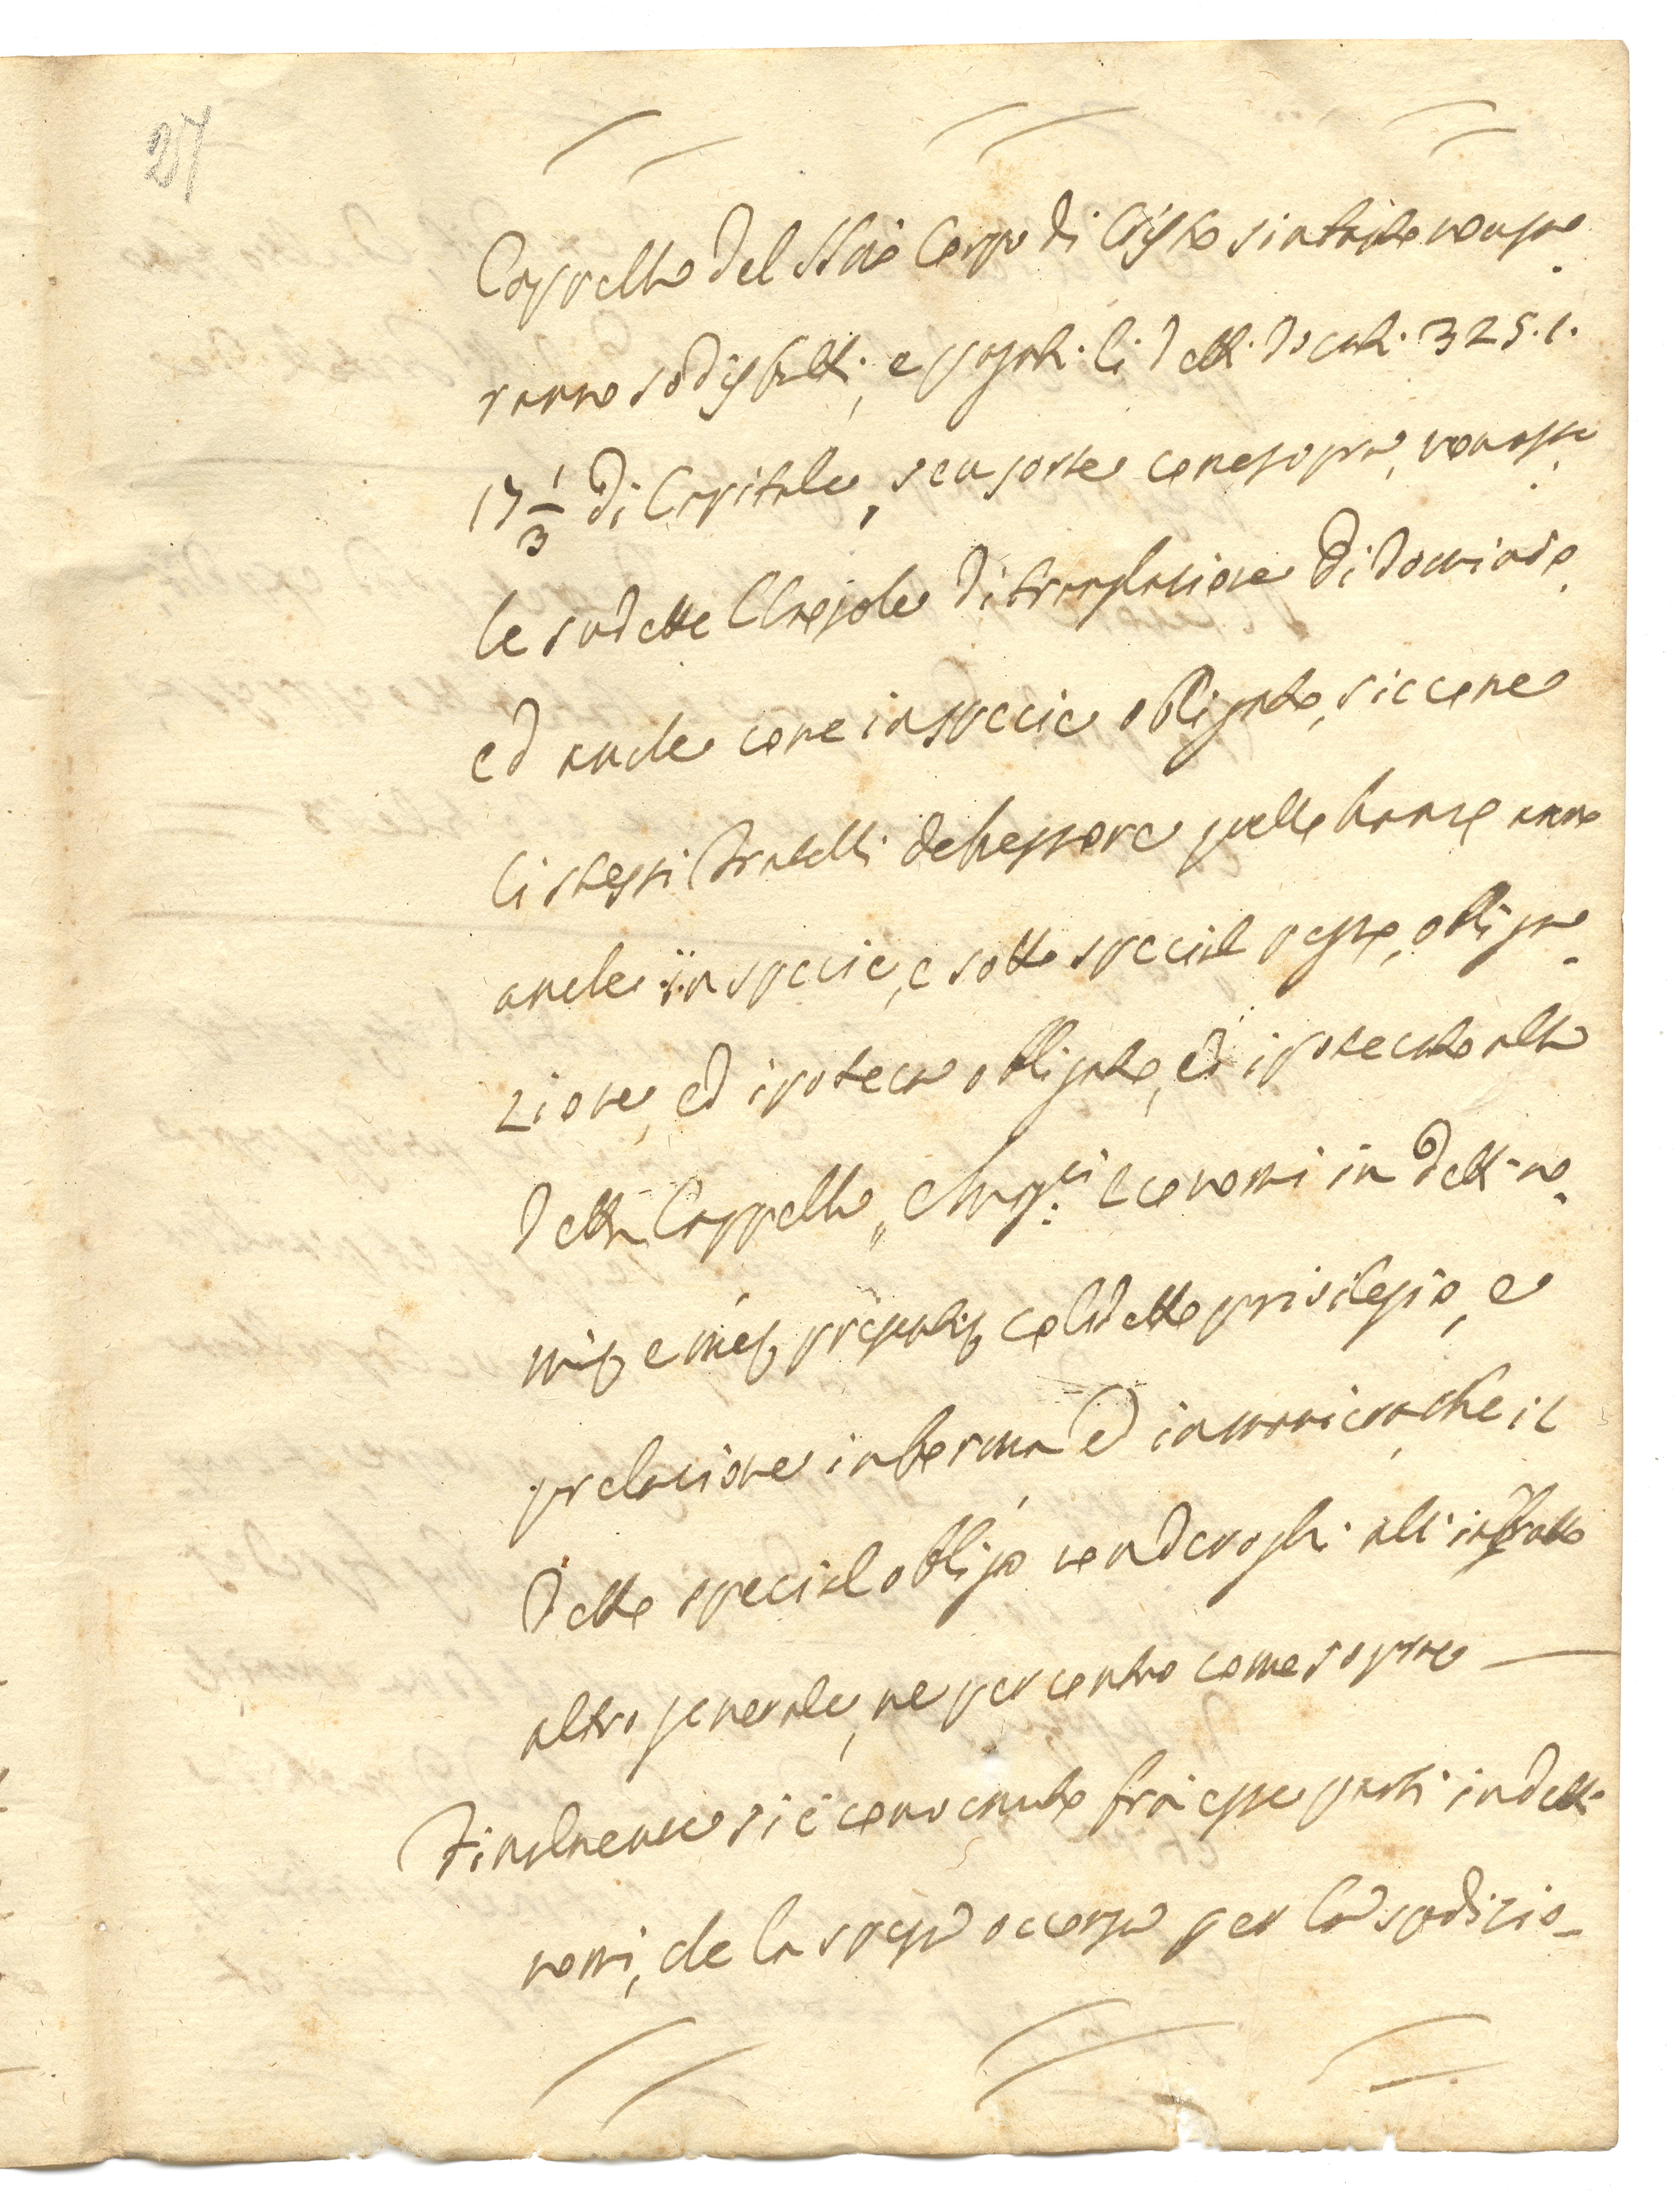 27
Cappella del SSmo Corpo di Cristo sintanto non sa-
ranno sodisfatti, e pagati li detti docati 325.1.
17 1/3 di Capitale, seu sorte come sopra, non ost.e
le sudette Clausole di translazione di dominio,
ed anche come in specie obligato, siccome
li stessi fratelli de Pessore quelle hanno anno
anche in specie, e sotto special patto, obliga-
zione, ed ipoteca obligato, ed ipotecato alla
detta Cappella, e Mag.ci Economi in detti no-
mi, e me presente col detto privilegio, e
prelazione in forma Ed in maniera, che il
detto special obligo non deroghi all' infratto
altro generale, ne per contro come sopra —
Finalmente si è convenuto frà esse parti in detti
nomi, che la spesa occorsa per la spedizio-